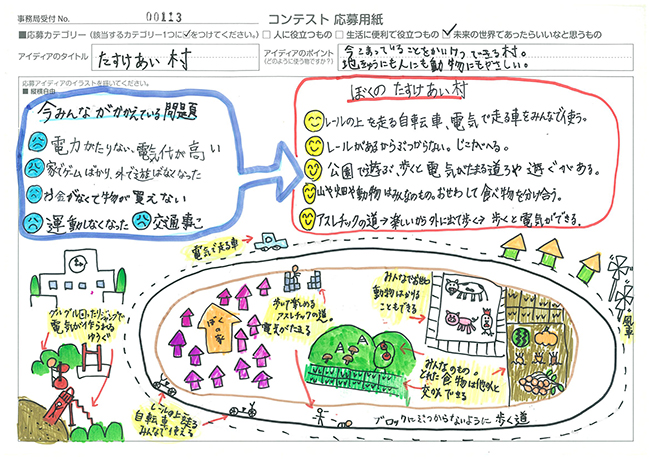 事務局受付 No. 00113 コンテスト 応募用紙
■応募カテゴリー (該当するカテゴリー1つに☑をつけてください。) □人に役立つもの □生活に便利で役立つもの ☑未来の世界であったらいいなと思うもの
アイディアのタイトル たすけあい村
アイディアのポイント (どのように使う物ですか?)
今こまっていることをかいけつできる村。
地きゅうにも人にも動物にもやさしい。
応募アイディアのイラストを描いてください。
■縦横自由
今みんながかかえている問題
電力がたりない、電気代が高い
家でゲームばかり、外で遊ばなくなった
お金がなくて物が買えない
運動しなくなった 交通事こ
ぼくの たすけあい村
レールの上を走る自転車、電気で走る車をみんなで使う。
レールがあるからぶつからない。じこがへる。
公園で遊ぶ、歩くと電気がたまる道ろや遊ぐがある。
山や畑や動物はみんなのもの。おせわして食べ物を分け合う。
アスレチックの道→楽しいから外に出て歩く→歩くと電気ができる。
電気で走る車
歩いて楽しめる
アスレチックの道
電気がたまる
みんなでお世話
動物をかりる
こともできる
ぼくの家
風車
電気が作りだせる
ゆうぐ
みんなのもの
とれた食物は他の人と
交かんできる
レールの上を走る
自転車
みんなで使える
ブロックにぶつからないように 歩く道